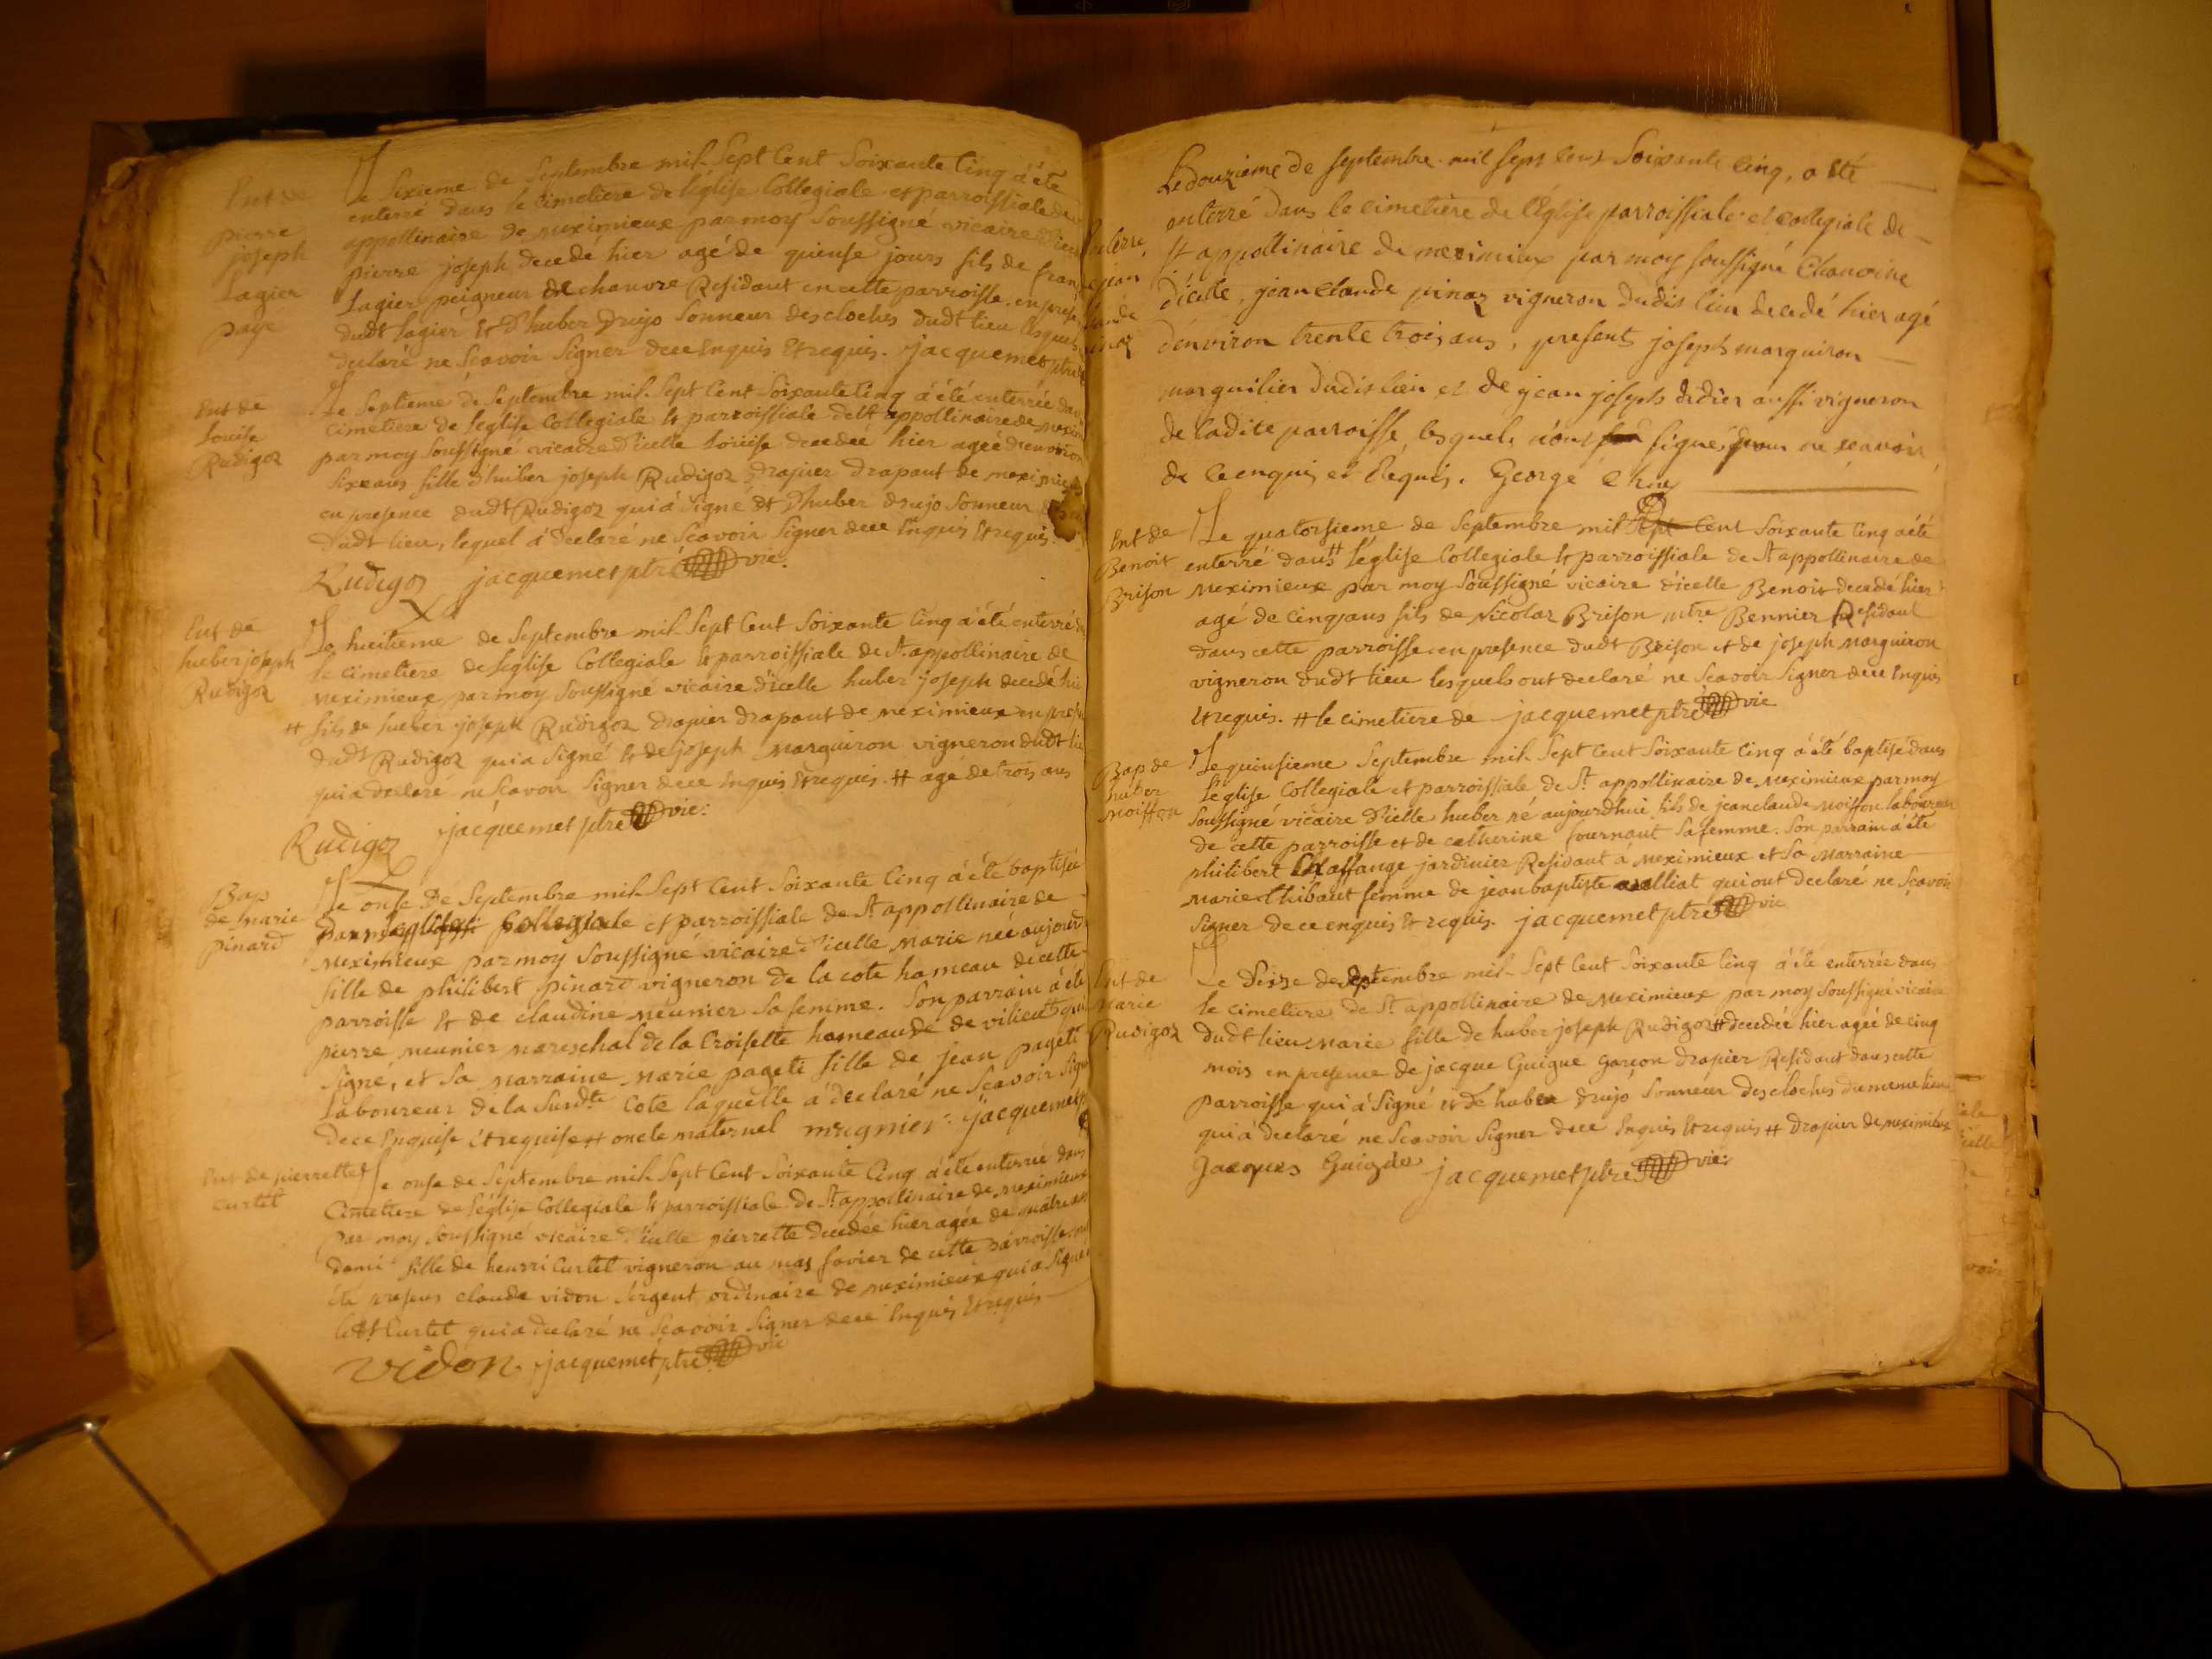 Ent de
pierre
joseph
Lagier
paye
Le Sixieme de Septembre mil Sept Cent Soixante Cinq a été
enterré dans le cimetiere de l'église Collegiale et parroissiale de
appollinaire de meximieux par moy Soussigné vicaire d'icelle
pierre joseph decedé hier agé de quinse jours fils de fran
Lagier peigneur de chanvre Residant en cette parroisse en prese
dudt Lagier et d'huber Drujo Sonneur des cloches dudt lieu lesquels
declaré ne scavoir Signer de ce Enquis et requis. jacquemet ptre
Ent de
Louise
Rudigoz
Le Septieme de Septembre mil Sept Cent Soixante Cinq a été enterrée dans
cimetiere de l'église Collegiale et parroissiale de St appollinaire de mexim
par moy Soussigné vicaire d'icelle Louise decedée hier ageé d'environ
Six ans fille d'huber joseph Rudigoz drapier drapant de meximieux
en presence dudt Rudigoz qui a Signé et d'huber drujo Sonneur
dudt lieu, lequel a declaré ne Scavoir Signer de ce Enquis et requis.
Rudigoz jacquemet ptre vic.
Ent de
huber joseph
Rudigoz
Le huitieme de Septembre mil Sept Cent Soixante Cinq a été enterré
le cimetiere de l'église Collegiale et parroissiale de St. appollinaire de
meximieux par moy Soussigné vicaire d'icelle huber joseph decedé hi
# fils de huber joseph Rudigoz drapier drapant de meximieux en prese
dudt Rudigoz qui a Signé et de joseph Marguiron vigneron dudt lie
qui a declaré ne Scavoir Signer de ce Enquis et requis. # agé de trois ans
Rudigoz jacquemet ptre vic:
Bap
de Marie
pinard
Le onse De Septembre mil Sept Cent Soixante Cinq a été baptisée
Collegiale et parroissiale de St appollinaire de
Meximieux par moy Soussigné vicaire d'icelle Marie neé aujourd
fille de philibert pinard vigneron de la cote hameau de cette
parroisse et de claudine meunier Sa femme. Son parrain a été
pierre meunier mareschal de la Croisette hameau de de vilieu # qui
Signé, et Sa Marraine Marie pageti fille de jean pageti
Laboureur de la Susdte Cote laquelle a declaré ne Scavoir Sign
de ce Enquise et requise # oncle maternel mugnier: jacquemet p
Ent de pierrette
Curtet
Le onse de Septembre mil Sept Cent Soixante Cinq a été enterrée dans
Cimetiere de l'église Collegiale et parroissiale De St appollinaire de meximieux
par moy Soussigné vicaire d'icelle pierrette decedée hier agée de quatre ans
demi fille de henri Curtet vigneron au mas favier de cette parroisse
été presens claude vidon Sergent ordinaire de meximieux qui a Signé
ledt Curtet qui a declaré ne Scavoir Signer de ce Enquis et requis
Vidon. jacquemet ptre vic
Enterre
jean
claude
pinaz
Le douzieme de septembre mil sept cent soixante cinq, a été
enterré dans le cimetière de l'Eglise parroissiale et collegiale de
St appollinaire de meximieux par moy soussigné Chanoine
d'icelle, jean claude pinaz vigneron dudit lieu decedé hier agé
d'environ trente trois ans, presents joseph marguiron
marguilier dudit lieu et de jean joseph didier aussi vigneron
de ladite parroisse, lesquels n'ont signé pour ne sçavoir
de ce enquis et Requis. George Chne
Ent de
Benoit
Brison
Le quatorsieme de Septembre mil Sept Cent Soixante Cinq a été
enterré dans # l'église Collegiale et parroissiale de St appollinaire de
Meximieux par moy Soussigné vicaire d'icelle Benoit decedé hier
agé de cinq ans fils de Nicolas Brison mtre Bennier Residant
dans cette parroisse en presence dudt Brison et de joseph Marguiron
vigneron dudt lieu lesquels ont declaré ne Scavoir Signer de ce Enquis
et requis. # le cimetiere de jacquemet ptre vic
Bap de
huber
Moiffon
Le quinsieme Septembre mil Sept Cent Soixante Cinq a été baptisé dans
l'église Collegiale et parroissiale de St appollinaire de Meximieux par moy
Soussigné vicaire d'icelle huber né aujourdhui fils de jean claude Moiffon laboureur
de cette parroisse et de catherine fournant Sa femme. Son parrain a été
philibert Chassange jardinier Residant a Meximieux et Sa Marraine
Marie thibaut femme de jean baptiste alliat qui ont declaré ne Scavoir
Signer de ce enquis et requis. jacquemet ptre vic
Ent de
Marie
Rudigoz
Le Seize de Septembre mil Sept Cent Soixante Cinq a été enterrée dans
le cimetiere de St appollinaire de Meximieux par moy Soussigné vicaire
dudt lieu Marie fille de huber joseph Rudigoz # decedée hier ageé de cinq
mois en presence de jacque Guigue Garcon drapier Residant dans cette
parroisse qui a Signé et de huber drujo Sonneur des cloches du meme lieu
qui a declaré ne Scavoir Signer de ce Enquis et requis # drapier de meximieux
Jacques Guigue jacquemet ptre vic: